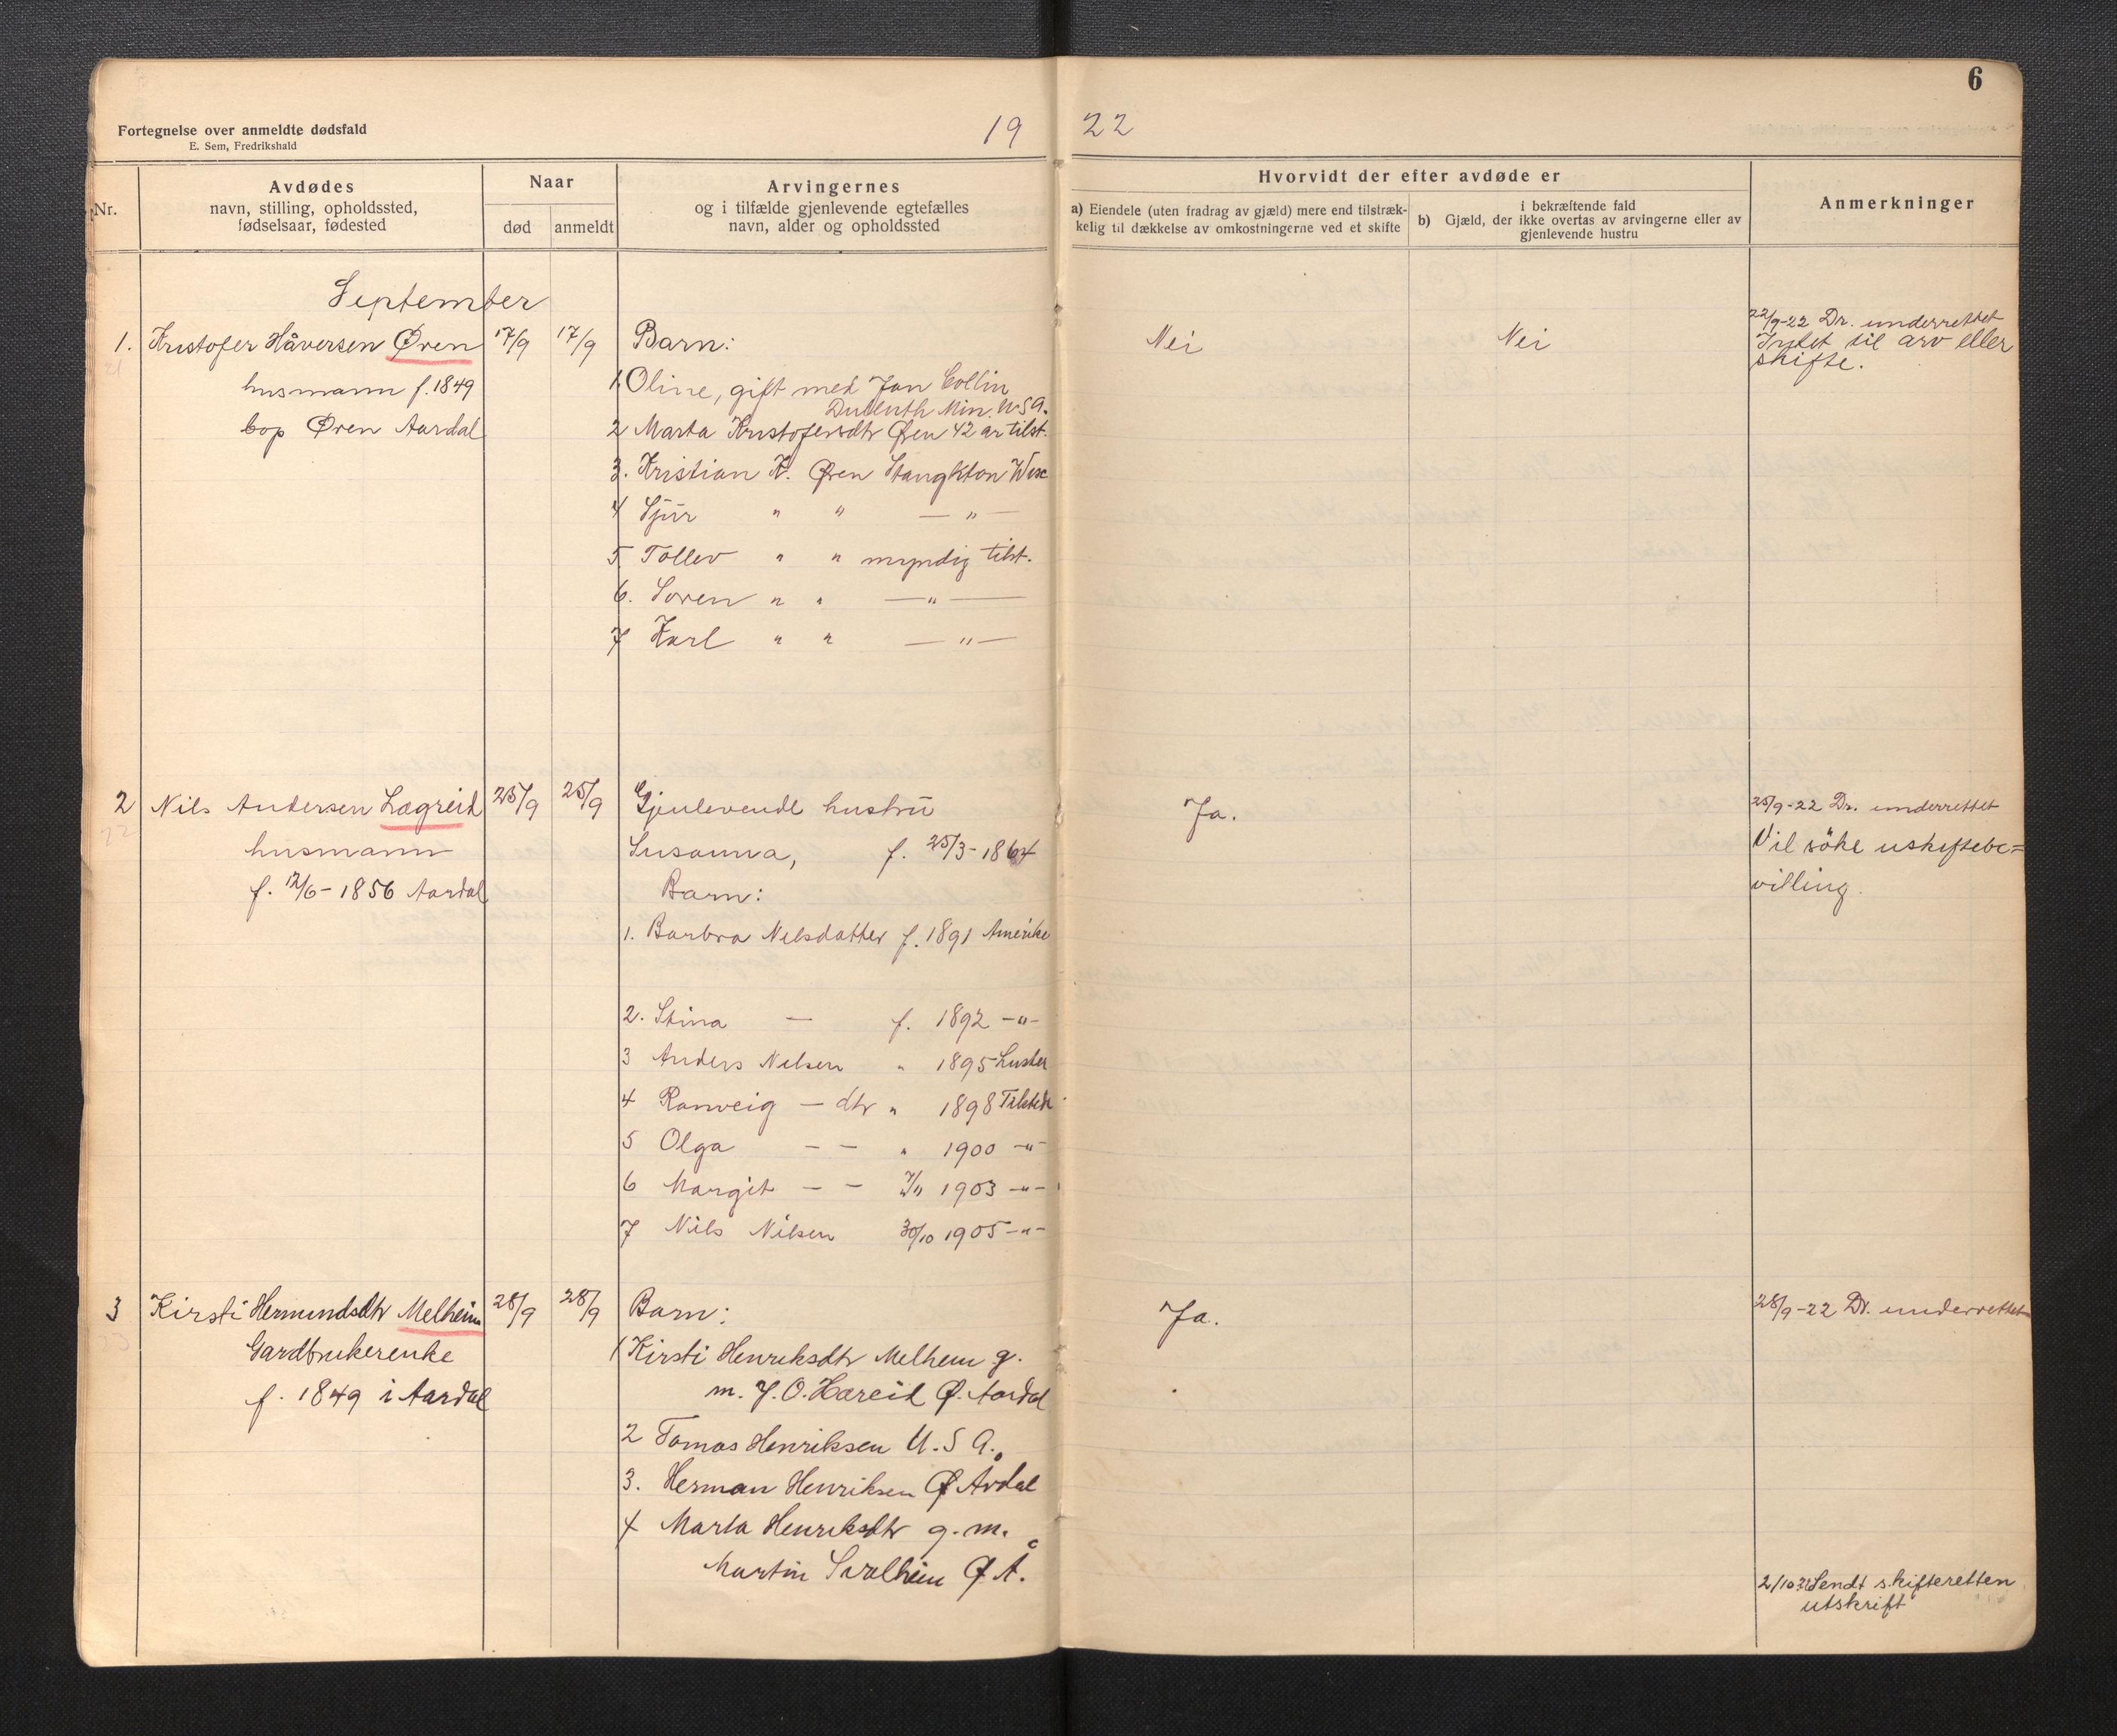 6
Fortegnelse over anmeldte dødsfald
E. Sem, Fredrikshald
19 22
Nr.
Avdødes
navn, stilling, opholdssted,
fødselsaar, fødested
Naar
død
anmeldt
Arvingernes
og i tilfælde gjenlevende egtefælles
navn, alder og opholdssted
Hvorvidt der efter avdøde er
a) Eiendele (uten fradrag av gjæld) mere end tilstræk-
kelig til dækkelse av omkostningerne ved et skifte
i bekræftende fald
b) Gjæld, der ikke overtas av arvingerne eller av
gjenlevende hustru
Anmerkninger
September
1. Kristofer Håversen Øren 17/9 17/9 Barn: Nei Nei
21
husmann f. 1849
bop Øren Aardal
1 Oline, gift med Jan Collin
Duluth Min. U.S.A.
2 Marta Kristofersdtr Øren 42 ar tilst.
3. Kristian K. Øren Staughton Wisc
4 Sjur " " — " —
5 Tollev " " myndig tilst.
6. Soren " " — " —
7 Karl " " — " —
22/9-22 Dr. underrettet
Intet til arv eller
skifte.
2 Nils Andersen Lægreid 25/9 25/9 Gjenlevende hustru Ja.
22
husmann
f. 12/6-1856 Aardal
Susanna, f. 25/3-1864
Barn:
1. Barbra Nilsdatter f. 1891 Amerika
2. Stina — f. 1892 -"-
3 Anders Nilsen " 1895 Luster
4 Ranveig — dtr " 1898 Tilstede
5 Olga — — " 1900 -"-
6 Margit — — 1903 -"-
7 Nils Nilsen 30/10 1905 -"-
25/9-22 Dr. underrettet
Vil söke uskiftebe=
villing.
3 Kirsti Hermundsdtr Melheim 28/9 28/9 Barn: Ja.
Gardbrukerenke
f. 1849 i Aardal
1 Kirsti Henriksdtr Melheim g.
m. J. O. Hæreid Ø. Aardal
2 Tomas Henriksen U.S A.
3. Herman Henriksen Ø Årdal
4 Marta Henriksdtr g. m.
Martin Ø Å.
28/9-22 Dr. underrettet
2/10 22 Sendt skifteretten
utskrift